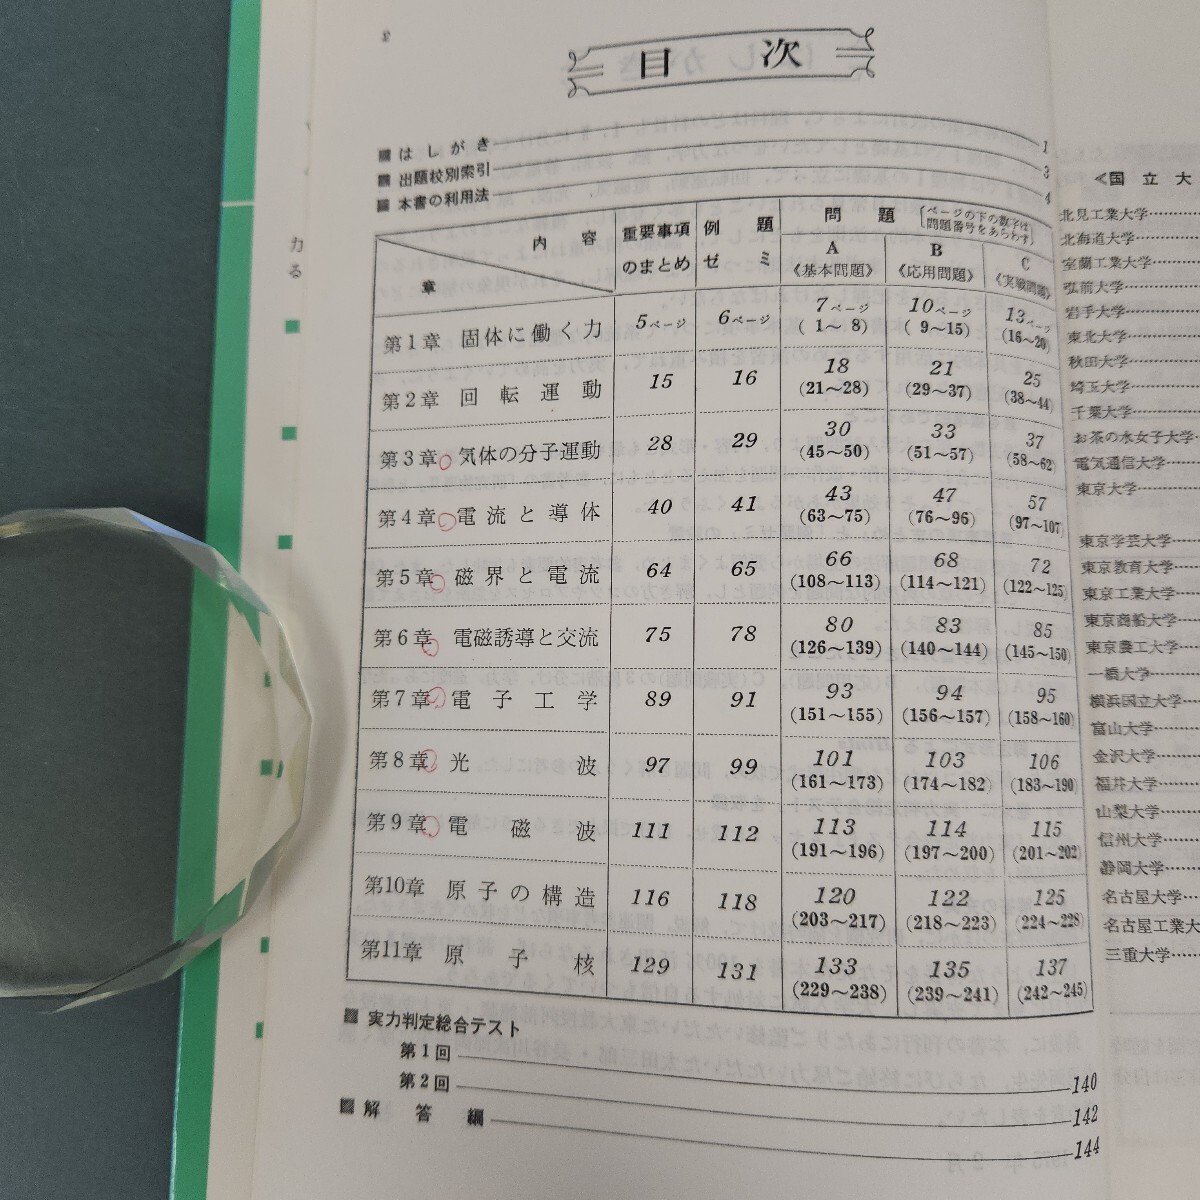 2
目次
■はしがき 1
■出題校別索引 3
■本書の利用法 4
内容 重要事項のまとめ 例題ゼミ 問題〔ページの下の数字は問題番号をあらわす〕
章 A《基本問題》 B《応用問題》 C《実戦問題》
第1章 固体に働く力 5ページ 6ページ 7ページ(1〜8) 10ページ(9〜15) 13ページ(16〜20)
第2章 回転運動 15 16 18(21〜28) 21(29〜37) 25(38〜44)
第3章 気体の分子運動 28 29 30(45〜50) 33(51〜57) 37(58〜62)
第4章 電流と導体 40 41 43(63〜75) 47(76〜96) 57(97〜107)
第5章 磁界と電流 64 65 66(108〜113) 68(114〜121) 72(122〜125)
第6章 電磁誘導と交流 75 78 80(126〜139) 83(140〜144) 85(145〜150)
第7章 電子工学 89 91 93(151〜155) 94(156〜157) 95(158〜160)
第8章 光波 97 99 101(161〜173) 103(174〜182) 106(183〜190)
第9章 電磁波 111 112 113(191〜196) 114(197〜200) 115(201〜202)
第10章 原子の構造 116 118 120(203〜217) 122(218〜223) 125(224〜228)
第11章 原子核 129 131 133(229〜238) 135(239〜241) 137(242〜245)
■実力判定総合テスト
第1回 140
第2回 142
■解答編 144
力
る
《国立大
北見工業大学
北海道大学
室蘭工業大学
弘前大学
岩手大学
東北大学
秋田大学
埼玉大学
千葉大学
お茶の水女子大学
電気通信大学
東京大学
東京学芸大学
東京教育大学
東京工業大学
東京商船大学
東京農工大学
一橋大学
横浜国立大学
富山大学
金沢大学
福井大学
山梨大学
信州大学
静岡大学
名古屋大学
名古屋工業大
三重大学